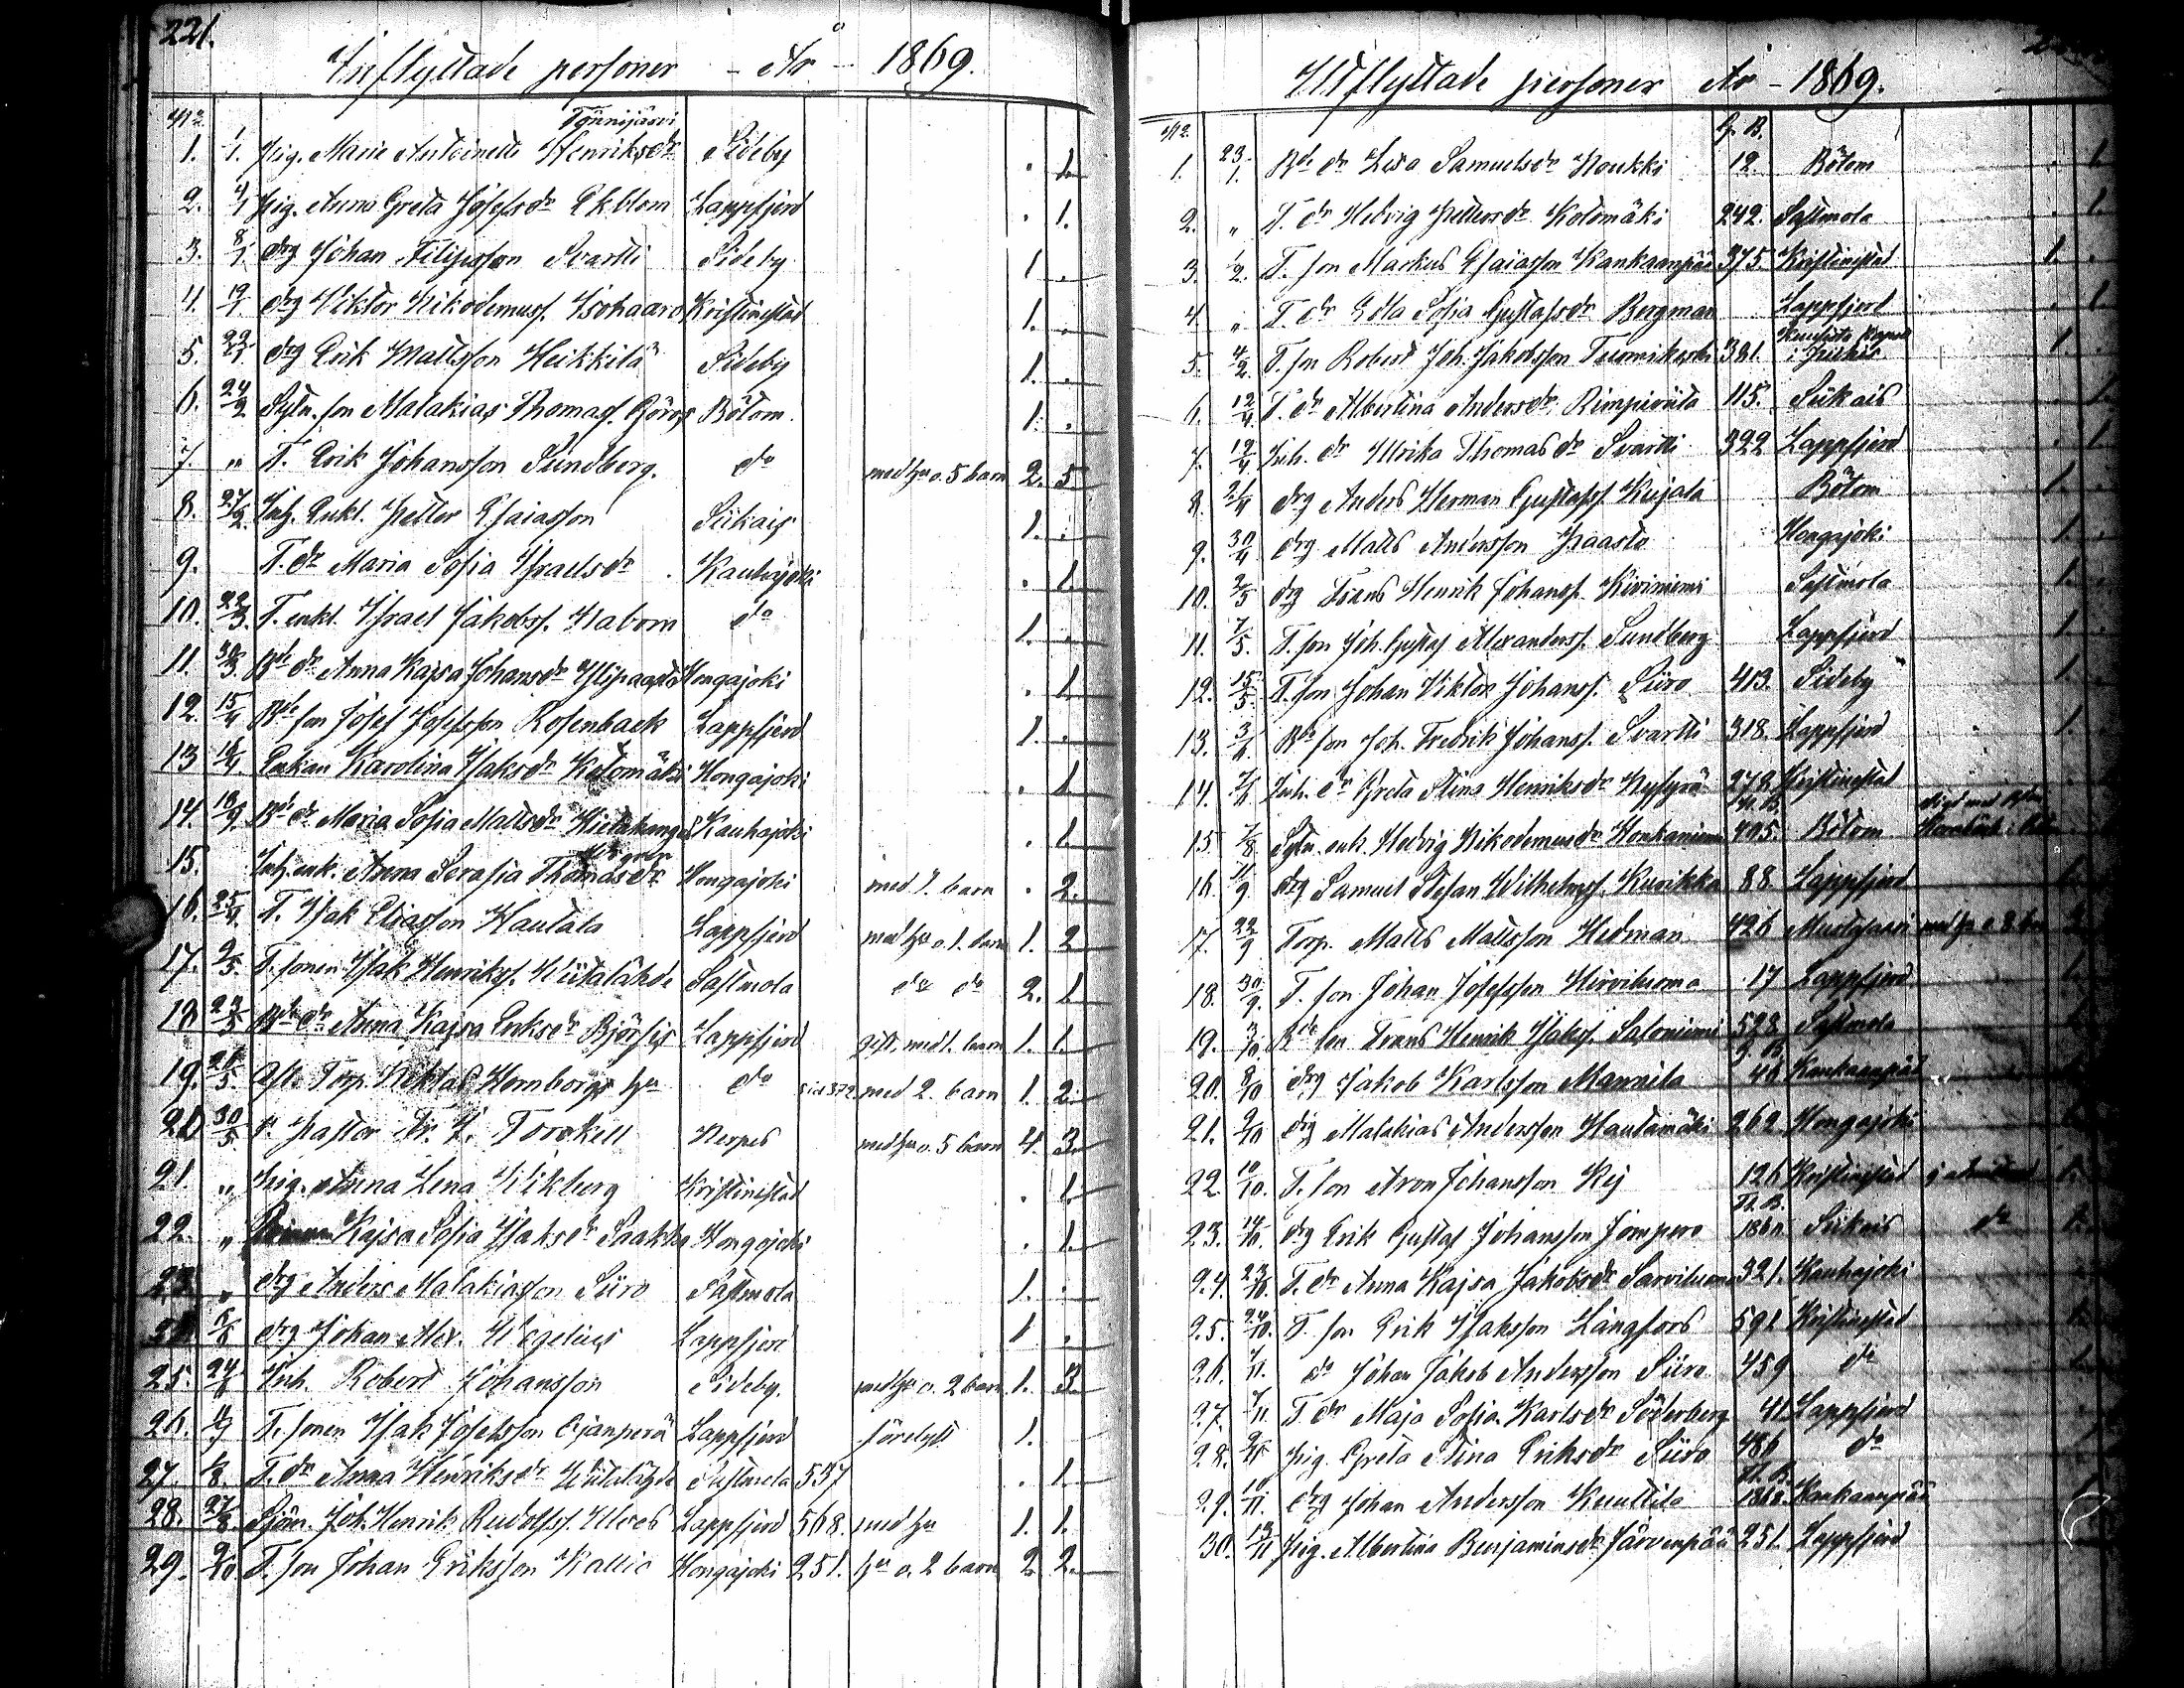 221.
Inflyttade personer – År – 1869.
N:o Tönnijärvi
1. 1/1. Pig. Marie Antoinette Henriksdr Sideby . 1.
2. 4/1 Pig. Anna Greta Josefsdr Ekblom Lappfjerd . 1.
3. 8/1 drg Johan Filipsson Svartti Sideby 1 .
4. 19/1. drg Viktor Nikodemuss. Isohaaro Kristinestad 1. .
5. 22/1. drg Erik Mattsson Heikkilä Sideby 1. .
6. 24/2 Sytn. son Malakias Thomass. Böros Bötom. 1. .
7. " T. Erik Johansson Sundberg. do med hu o. 5 barn 2. 5.
8. 27/2. Inh. Enkl. Petter Esaiasson Siikais 1. .
9. T. dr Maria Sofia Israelsdr Kauhajoki . 1.
10. 22/3. T. enkl. Israel Jakobss. Habom do 1. .
11. 30/3. Bde dr Anna Kajsa Johansdr Ylipaasto Hongajoki . 1.
12. 15/4 Bde son Josef Josefsson Rosenback Lappfjerd 1. .
13 16/4. Enkan Karolina Isaksdr Kotomäki Hongajoki . 1.
14. 18/4. Bde dr Maria Sofia Mattsdr Hietakangas Kauhajoki . 1.
15. Inh. enk. Anna Serafia Thomasdr Hongajoki med 1. barn . 2.
16. 25/4. T. Isak Eliasson Hautala Lappfjerd med hu o. 1. barn 1. 2
17. 2/5. T. sonen Isak Henrikss. Wiitalähde Sastmola do do 2. 1
18 23/5 Bde dr Anna Kajsa Eriksdr Björses Lappfjerd gift, med 1. barn 1. 1.
19. 28/5. Afsk. Torp. Niklas Hornborgs hu do sid 372 med 2. barn 1. 2
20 30/5 v. Pastor Fr. L. Torckell Nerpes med hu o. 5 barn 4. 3.
21. " Pig. Anna Lena Wikberg Kristinestad . 1.
22. " Kajsa Sofia Isaksdr Saakka Hongojoki . 1.
23. " drg Anders Malakiasson Siiro Sastmola 1. .
6/6 drg Johan Alex. Wegelius Lappfjerd 1 .
25. 24/6 Inh. Robert Johansson Sideby. med hu o. 2 barn 1. 3.
26. T. sonen Isak Josefsson Ojanperä Lappfjerd förelyst 1.
27. T. dr Anna Henriksdr Wiitalähde Sastmola 537 . 1
28. 27/8. Sjöm. Joh. Henrik Rudolfss. Ulvves Lappfjerd 568. med hu 1. 1.
29. 2/10 T. son Johan Eriksson Kallio Hongajoki 251. hu o. 2 barn 2. 2.
Utflyttade personer År – 1869.
N:o G. B.
1. 23/1. Bde dr Lisa Samuelsdr Houkki 12. Bötom . 1.
2. " T. dr Hedvig Pettersdr Kotomäki 242. Sastmola . 1.
3. 1/2. T. son Markus Esaiasson Kankaanpää 375. Kristinestad 1. .
4 " T. dr Edla Sofia Gustafsdr Bergman Lappfjerd . 1.
5. 4/2. T. son Robert Joh. Jakobsson Tuomikoski 381. 1. .
6. 12/4. T. dr Albertina Andersdr Rimpiviita 115. Siikais . 1.
7. 19/4 Inh. dr Ulrika Thomasdr Svartti 322 Lappfjerd . 1.
8. 21/4 drg Anders Herman Gustafss. Kujala Bötom 1. .
9. 30/4 drg Matts Andersson Paasto Hongajoki 1. .
10. 2/5 drg Frans Henrik Johanss. Kiviniemi Sastmola 1. .
11. 7/5. T. son Joh. Gustaf Alexanderss. Sundberg Lappfjerd 1. .
12. 15/5. T. son Johan Viktor Johanss. Siiro 413. Sideby 1.
13. 3/6 Bde son Joh. Fredrik Johanss. Svartti 318. Lappfjerd 1.
14. Inh. dr Greta Stina Henriksdr Nyfyrä 278. Kristinestad
15. 7/8 Sytn. enk. Hedvig Nikodemusdr Honkaniemi 405. Bötom
16. 11/9. drg Samuel Stefan Wilhelmss. Kuvikka 88 Lappfjerd
17. 22/9 Torp. Matts Mattsson Hedman 426 Mustasaari
18. 30/9. T. son Johan Josefsson Hirviluoma 17 Lappfjerd
19. 3/10. Bde son Frans Henrik Isakss. Saloniemi 528 Sastmola
G. B.
20. 8/10 drg Jakob Karlsson Mannila 46 Kankaanpää
21. 9/10 drg Malakias Andersson Hautamäki 262. Hongajoki
22. 10/10. T. son Aron Johansson Kej 126 Kristinestad
23. 14/10. drg Erik Gustaf Johansson Jompero Siikais do 1.
24. 23/10. T. dr Anna Kajsa Jakobsdr Sarviluoma 321. Kauhajoki
25. 24/10. T. son Erik Isaksson Långfors 591 Kristinestad
26. 1/11. do Johan Jakob Andersson Siiro 459 do
27. 7/11. T. dr Maja Sofia Karlsdr Söderberg 41 Lappfjerd
28. 9/11 Pig. Greta Stina Eriksdr Siiro 486 do
29. 10/11. drg Johan Andersson Kuuttila Kankaanpää
30. 13/11 Pig. Albertina Benjaminsdr Järvenpää 251. Lappfjerd